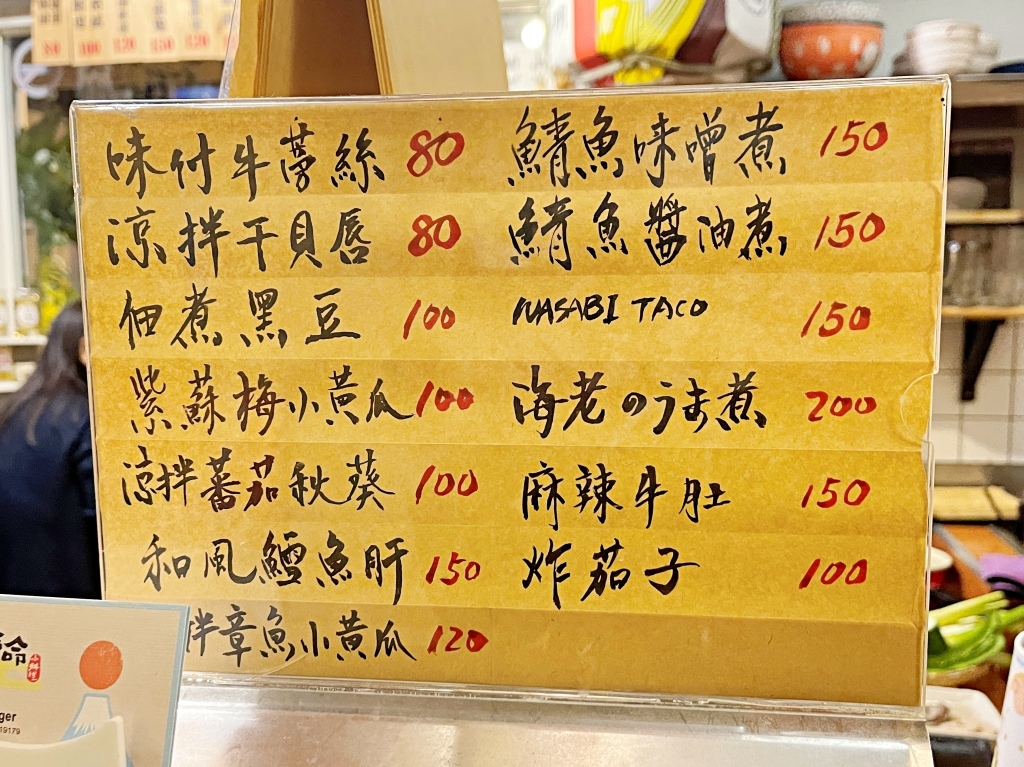 味付牛蒡絲 80
涼拌干貝唇 80
佃煮黑豆 100
紫蘇梅小黃瓜 100
涼拌蕃茄秋葵 100
和風鱈魚肝 150
拌章魚小黃瓜 120
鯖魚味噌煮 150
鯖魚醬油煮 150
WASABI TACO 150
海老のうま煮 200
麻辣牛肚 150
炸茄子 100
命
小料理
ger
19179
80 100 120 150 120